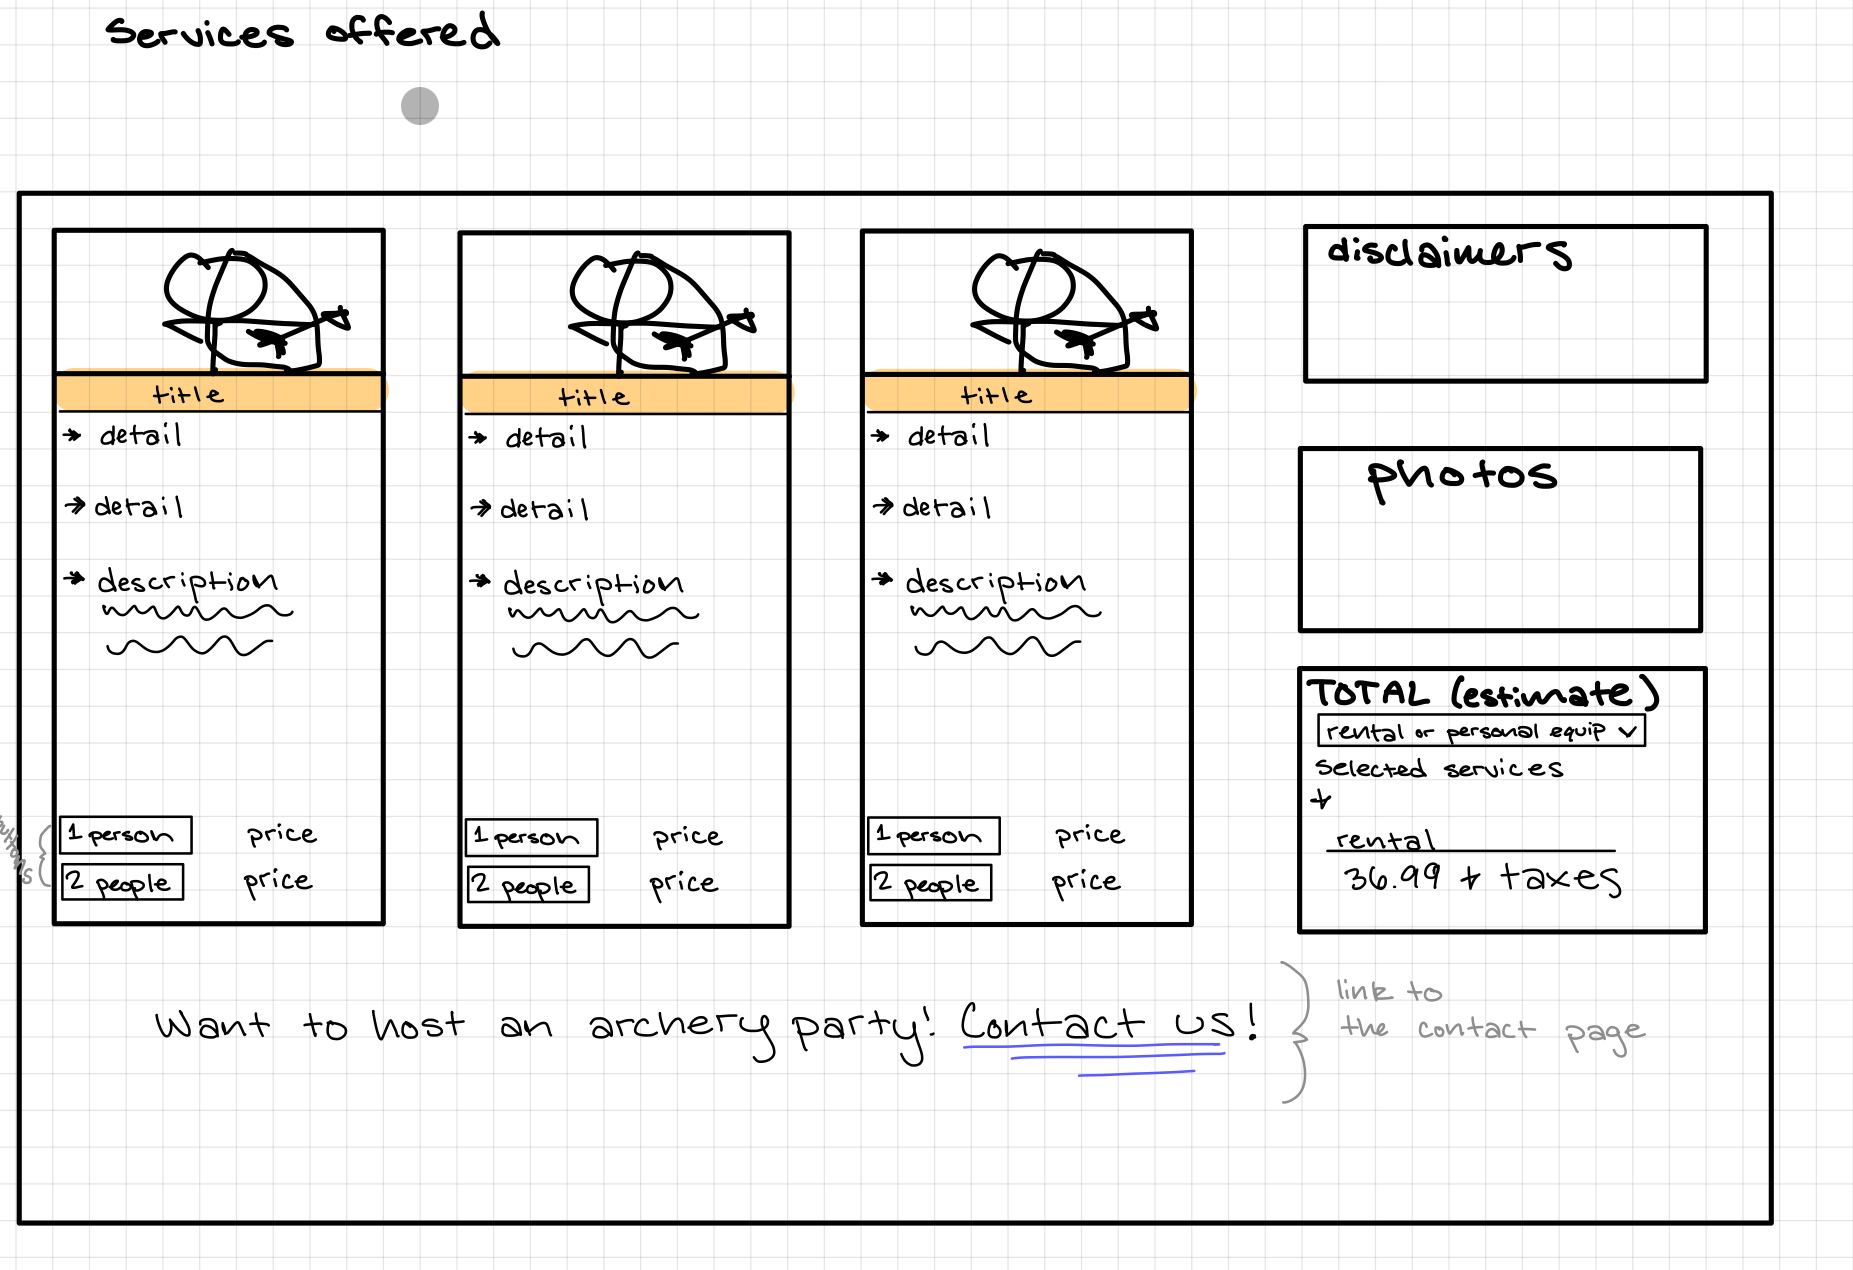 Services offered
title
→ detail
→ detail
→ description
1 person price
2 people price
buttons
title
→ detail
→ detail
→ description
1 person price
2 people price
title
→ detail
→ detail
→ description
1 person price
2 people price
disclaimers
photos
TOTAL (estimate)
rental or personal equip
selected services
+
rental
36.99 + taxes
Want to host an archery party! Contact us!
link to
the contact page